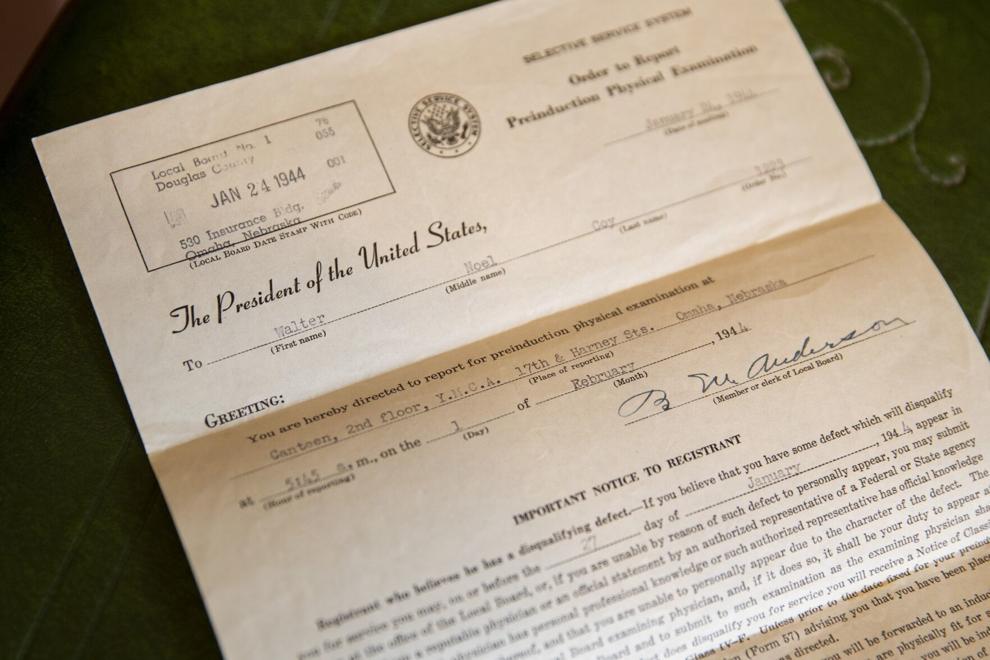 SELECTIVE SERVICE SYSTEM
Order to Report
Preinduction Physical Examination
January 24, 1944
(Date of mailing)
Local Board No. 1 76
Douglas County 055
JAN 24 1944 001
530 Insurance Bldg.
Omaha, Nebraska
(LOCAL BOARD DATE STAMP WITH CODE)
SELECTIVE SERVICE SYSTEM
(Order No.)
The President of the United States,
To Walter Noel Coy
(First name) (Middle name) (Last name)
GREETING:
You are hereby directed to report for preinduction physical examination at
Canteen, 2nd floor, Y.M.C.A. 17th & Harney Sts. Omaha, Nebraska
(Place of reporting)
at 5:45 a. m., on the 1 of February, 1944
(Hour of reporting) (Day) (Month)
B M Anderson
(Member or clerk of Local Board)
IMPORTANT NOTICE TO REGISTRANT
Registrant who believes he has a disqualifying defect.—If you believe that you have some defect which will disqualify
you for service you may, on or before the 27 day of January, 1944, appear in
at the office of the Local Board, or, if you are unable by reason of such defect to personally appear, you may submit
a reputable physician or an official statement by an authorized representative of a Federal or State agency
physician has personal professional knowledge or such authorized representative has official knowledge
thereof, and that you are unable to personally appear due to the character of the defect. The
Board examining physician, and, if it does so, it shall be your duty to appear
Board and to submit to such examination as the examining physician
disqualify you for service you will receive a Notice of
Class IV-F. Unless prior to the date fixed for your
(Form 57) advising you that you have been
as directed.
will be forwarded to an
are physically fit for
you will be